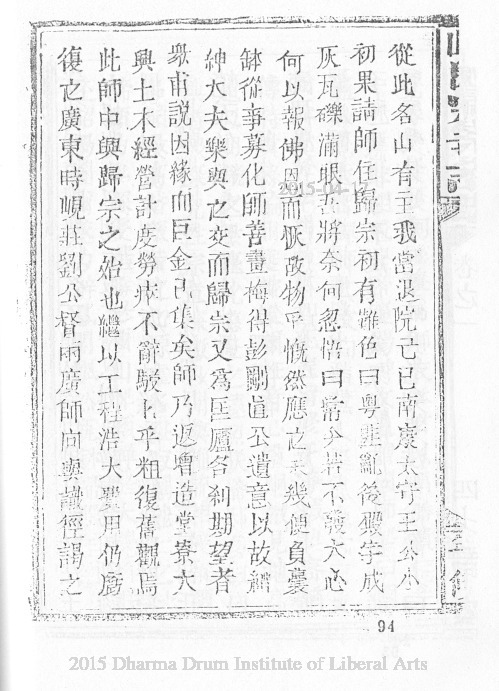 從此名山有主我當退院亡已南康太守王公小
初果請師住歸宗初有難色曰粵匪亂後殿宇成
灰瓦礫滿眼吾將奈何忽悟曰常分若不發大心
何以報佛恩而恢故物乎慨然應之未幾便負囊
缽從事募化師善畫梅得彭剛直公遺意以故縉
紳大夫樂與之交而歸宗又為匡廬各剎期望者
眾甫說因緣而巨金已集矣師乃返增造堂寮大
興土木經營計度勞瘁不辭駸駸乎粗復舊觀焉
此師中興歸宗之始也繼以工程浩大費用仍廣
復之廣東時峴莊劉公督兩廣師向與識徑謁之
94
2015-04-17
2015 Dharma Drum Institute of Liberal Arts